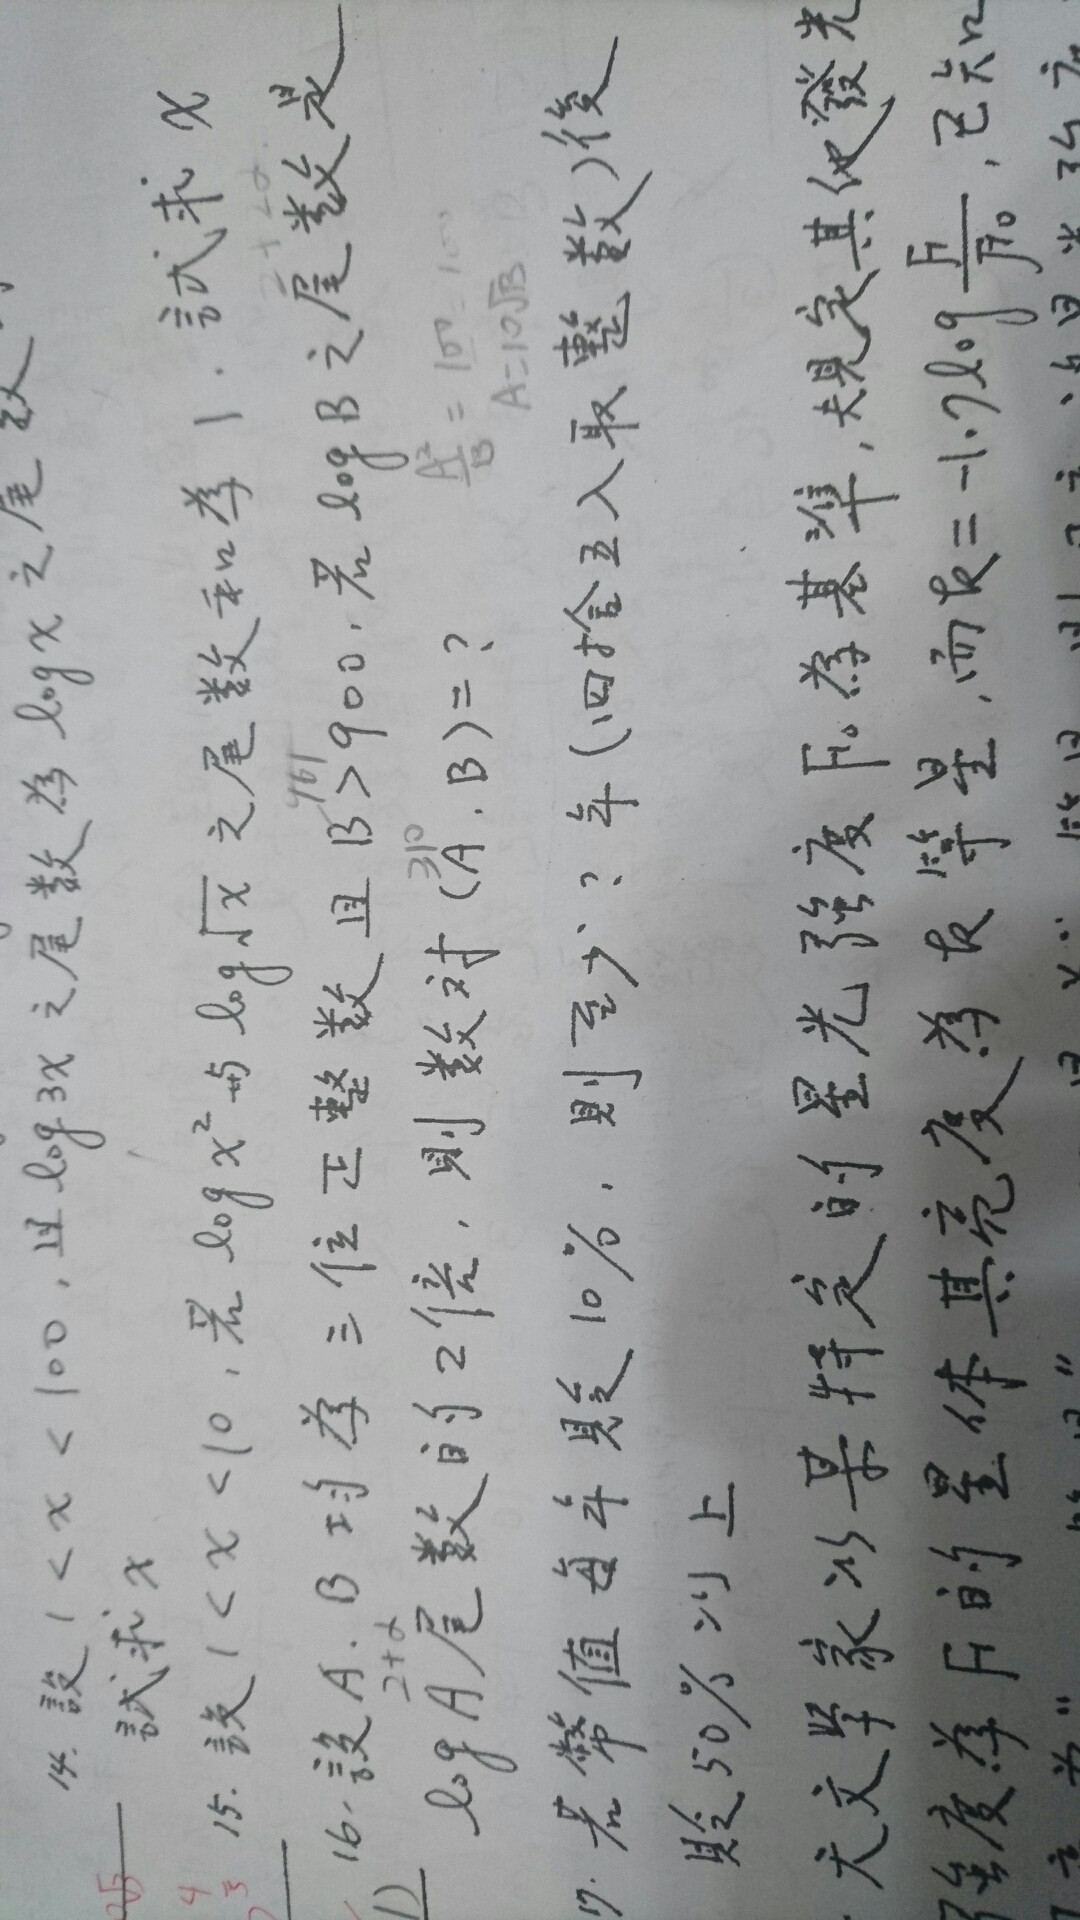 14. 設 1 < x < 100, 且 log 3x 之尾數為 log x 之尾數
試求 x
15. 設 1 < x < 10, 若 log x² 與 log √x 之尾數和為 1. 試求 x
16. 設 A. B 均為三位正整數且 B > 900, 若 log B 之尾數是
log A 尾數的 2 倍, 則數對 (A. B) = ?
2+α
310
961
2+2α
A²/B = 100
A=10√B
17. 若幣值每年貶 10%, 則至少? 年 (四捨五入取整數) 後
貶 50% 以上
天文學家以某特定的星光強度 F₀ 為基準, 規定其他發光
強度為 F 的星体其亮度為 k 等星, 而 k = -1.7 log F/F₀, 已知